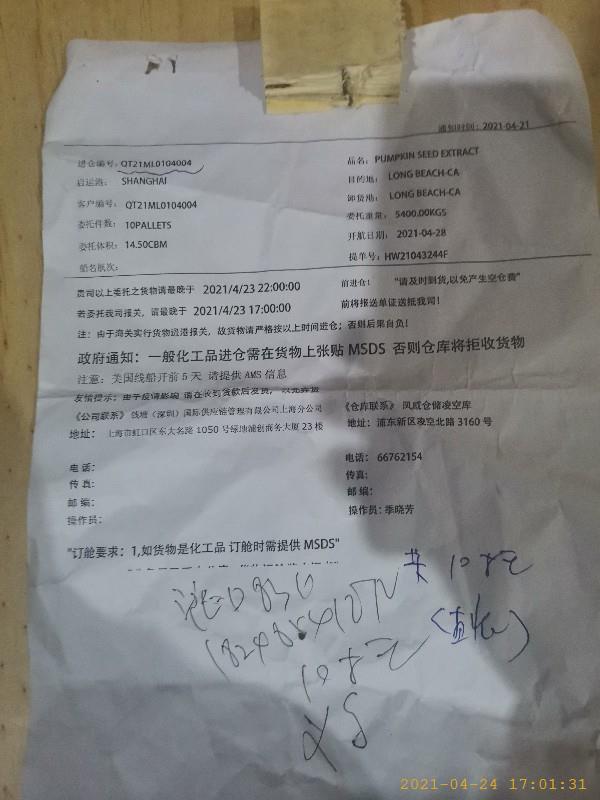 通知时间: 2021-04-21
进仓编号: QT21ML0104004
品名: PUMPKIN SEED EXTRACT
启运港: SHANGHAI
目的地: LONG BEACH-CA
卸货港: LONG BEACH-CA
客户编号: QT21ML0104004
委托重量: 5400.00KGS
委托件数: 10PALLETS
开航日期: 2021-04-28
委托体积: 14.50CBM
提单号: HW21043244F
船名航次:
贵司以上委托之货物请最晚于 2021/4/23 22:00:00 前进仓! "请及时到货,以免产生空仓费"
若委托我司报关, 请最晚于 2021/4/23 17:00:00 前将报送单证送抵我司!
注: 由于海关实行货物迟港报关, 故货物请严格按以上时间进仓; 否则后果自负!
政府通知: 一般化工品进仓需在货物上张贴 MSDS 否则仓库将拒收货物
注意: 美国线船开前 5 天 请提供 AMS 信息
友情提示: 由于疫情影响 请在收到货款后发货,
《公司联系》 (深圳) 国际供应链管理有限公司上海分公司
《仓库联系》 风威仓储凌空库
地址: 上海市虹口区东大名路 1050 号绿地浦创商务大厦 23 楼
地址: 浦东新区凌空北路 3160 号
电话:
电话: 66762154
传真:
传真:
邮编:
邮编:
操作员:
操作员: 季晓芳
"订舱要求: 1,如货物是化工品 订舱时需提供 MSDS"
共 10
10
2021-04-24 17:01:31